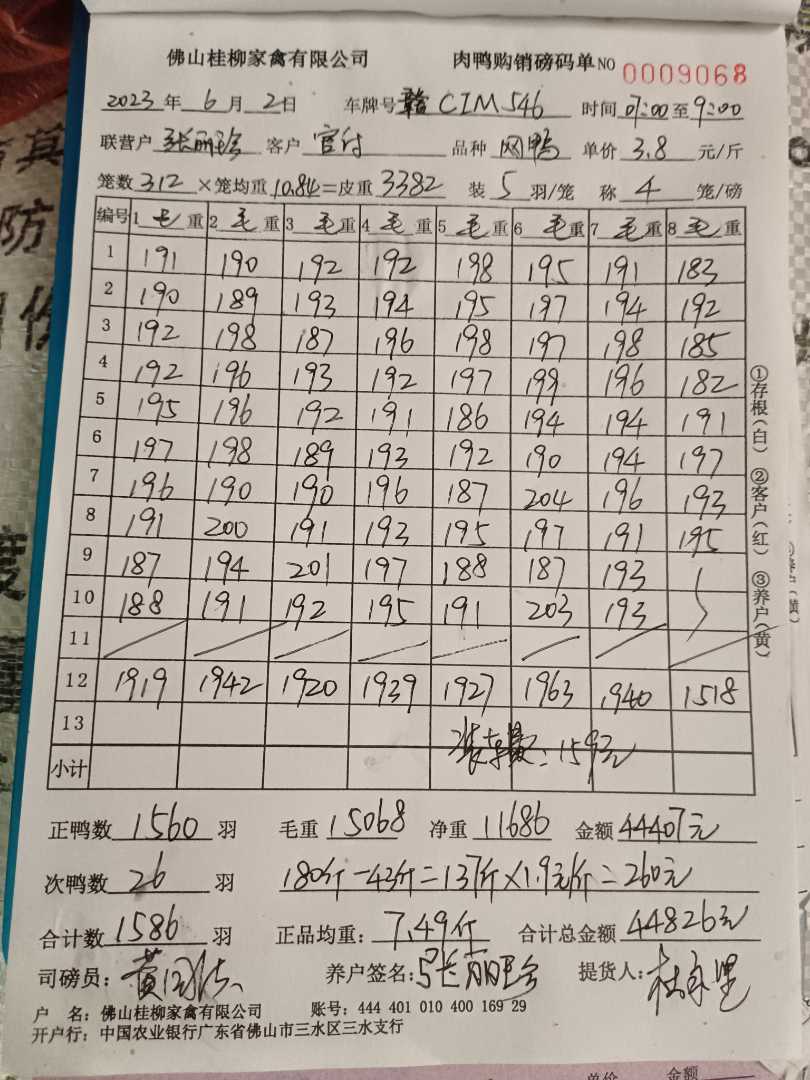 佛山桂柳家禽有限公司 肉鸭购销磅码单 NO 0009068
2023年6月2日 车牌号 赣CIM546 时间 07:00至9:00
联营户 张丽珍 客户 官付 品种 网鸭 单价 3.8 元/斤
笼数 312 ×笼均重 10.84 =皮重 3382 装 5 羽/笼 称 4 笼/磅
编号 1 毛 重 2 毛 重 3 毛 重 4 毛 重 5 毛 重 6 毛 重 7 毛 重 8 毛 重
1 191 190 192 192 198 195 191 183
2 190 189 193 194 195 197 194 192
3 192 198 187 196 198 197 198 185
4 192 196 193 192 197 199 196 182
5 195 196 192 191 186 194 194 191
6 197 198 189 193 192 190 194 197
7 196 190 190 196 187 204 196 193
8 191 200 191 193 195 197 191 195
9 187 194 201 197 188 187 193
10 188 191 192 195 191 203 193
11
12 1919 1942 1920 1939 1927 1963 1940 1518
13
装车费:159元
小计
正鸭数 1560 羽 毛重 15068 净重 11686 金额 44407元
次鸭数 26 羽 180斤-43斤=137斤×1.9元/斤=260元
合计数 1586 羽 正品均重: 7.49斤 合计总金额 44826元
司磅员: 养户签名: 张丽珍 提货人:
户 名: 佛山桂柳家禽有限公司 账号: 444 401 010 400 169 29
开户行: 中国农业银行广东省佛山市三水区三水支行
①存根(白) ②客户(红) ③养户(黄)
单价 金额